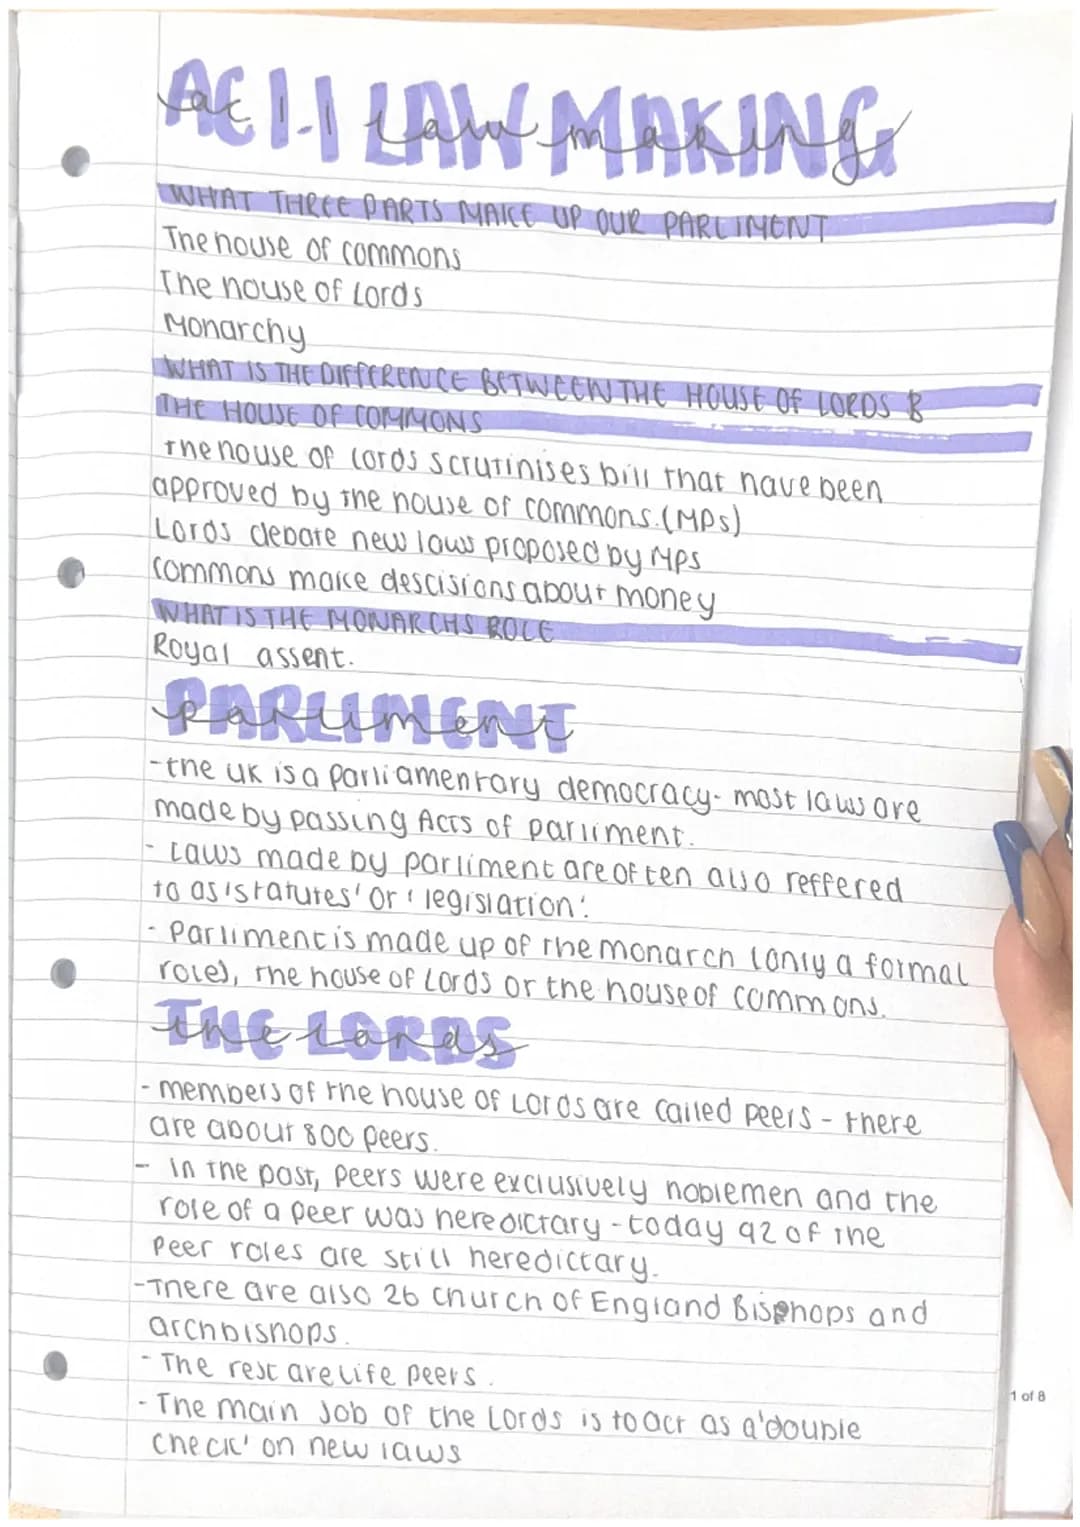 AC 1.1 LAW MAKING
ac 1.1 law making
WHAT THREE PARTS MAKE UP OUR PARLIMENT
The house of commons
The house of Lords
Monarchy
WHAT IS THE DIFFERENCE BETWEEN THE HOUSE OF LORDS &
THE HOUSE OF COMMONS
The house of lords scrutinises bill that have been
approved by the house of commons. (MPs)
Lords debate new laws proposed by MPs
commons make descisions about money
WHAT IS THE MONARCHS ROLE
Royal assent.
PARLIMENT
parliment
- the UK is a parliamentary democracy - most laws are
made by passing Acts of parliment.
- Laws made by parliment are often also reffered
to as 'statutes' or 'legislation'.
- Parliment is made up of the monarch (only a formal
role), the house of Lords or the house of commons.
THE LORDS
the lords
- members of the house of Lords are called peers - there
are about 800 peers.
- In the past, peers were exclusively noblemen and the
role of a peer was heredictary - today 92 of the
peer roles are still heredictary.
- There are also 26 church of England Bishops and
archbishops.
- The rest are life peers.
- The main job of the Lords is to act as a 'double
check' on new laws
1 of 8